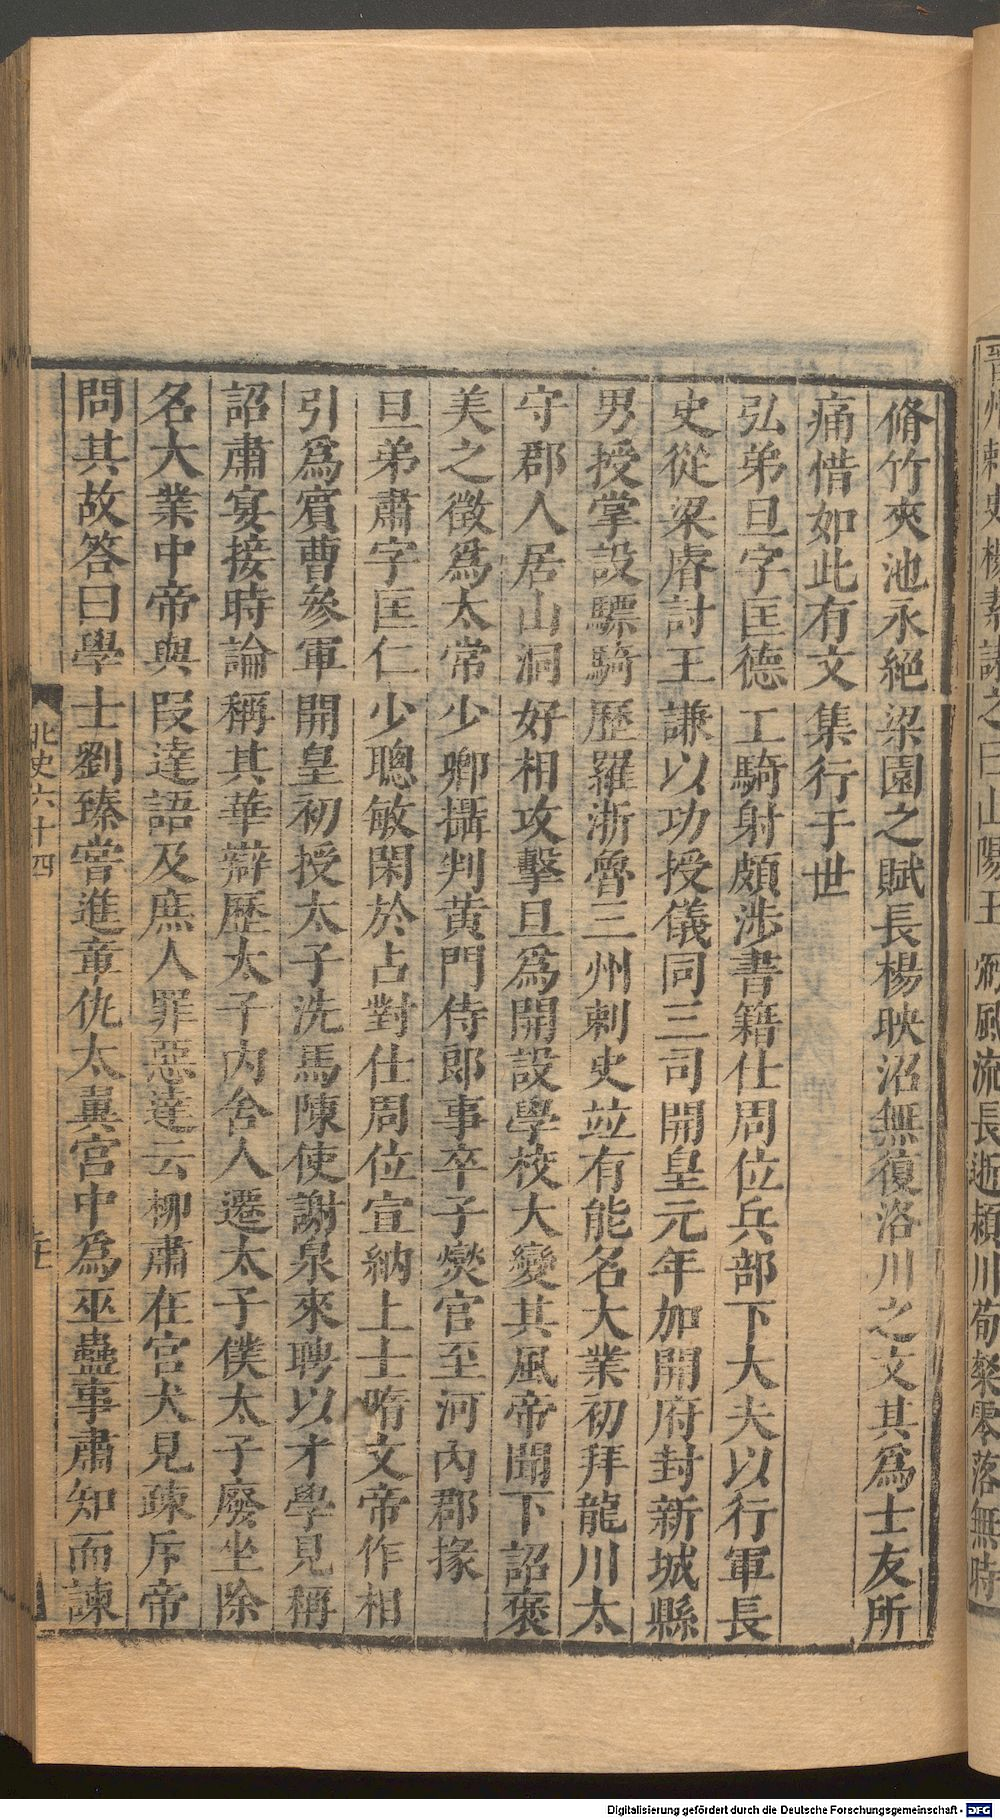 脩竹夾池永絕梁園之賦長楊映沼無復洛川之文其爲士友所
痛惜如此有文集行于世
弘弟旦字匡德工騎射頗涉書籍仕周位兵部下大夫以行軍長
史從梁睿討王謙以功授儀同三司開皇元年加開府封新城縣
男授掌設驃騎歷羅浙魯三州刺史竝有能名大業初拜龍川太
守郡人居山洞好相攻擊旦爲開設學校大變其風帝聞下詔褒
美之徵爲太常少卿攝判黃門侍郎事卒子燮官至河內郡掾
旦弟肅字匡仁少聰敏閑於占對仕周位宣納上士隋文帝作相
引爲賓曹參軍開皇初授太子洗馬陳使謝泉來聘以才學見稱
詔肅宴接時論稱其華辯歷太子內舍人遷太子僕太子廢坐除
名大業中帝與段達語及庶人罪惡達云柳肅在宮大見疎斥帝
問其故答曰學士劉臻嘗進章仇太翼宮中爲巫蠱事肅知而諫
北史六十四
Digitalisierung gefördert durch die Deutsche Forschungsgemeinschaft - DFG